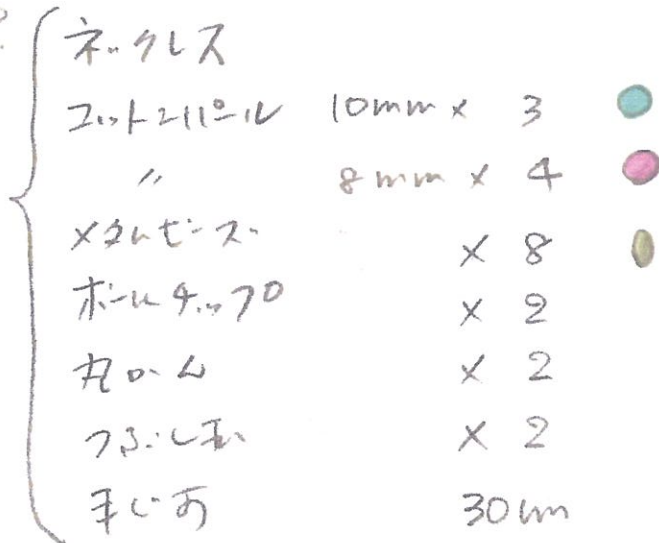 ネックレス
コットンパール 10mm × 3
〃 8mm × 4
メタルビーズ × 8
ボールチップ × 2
丸カン × 2
つぶし玉 × 2
30cm